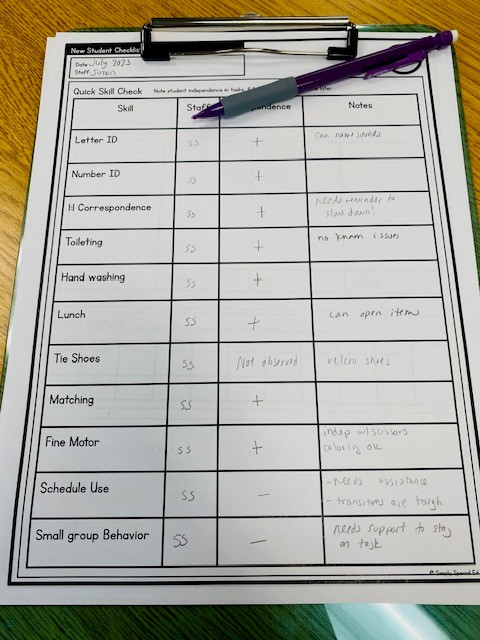 New Student Checklis
Date: July 2023
Staff:
Quick Skill Check Note student independence in tasks.
Skill Staff endence Notes
Letter ID SS + can name sounds
Number ID SS +
1:1 Correspondence SS + Needs reminder to
slow down!
Toileting SS + no known issues
Hand washing SS +
Lunch SS + can open items
Tie Shoes SS Not observed velcro shoes
Matching SS +
Fine Motor SS + indep w/ scissors
coloring ok
Schedule Use SS - -Needs assistance
- transitions are tough
Small group Behavior SS - needs support to stay
on task
© Simply Special Ed